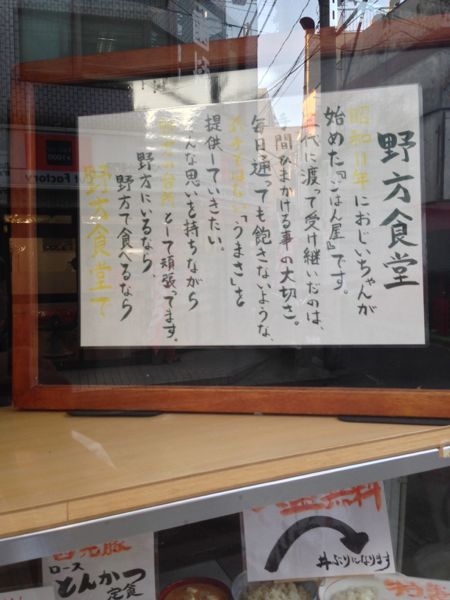 野方食堂
昭和11年におじいちゃんが
始めた『ごはん屋』です。
代に渡って受け継いだのは、
間ひまかける事の大切さ。
毎日通っても飽きないような、
「うまさ」を
提供していきたい。
んな思いを持ちながら
として頑張ってます。
野方にいるなら
野方で食べるなら
野方食堂で
ロース
とんかつ
定食
無料
丼ぶりになります
Factory